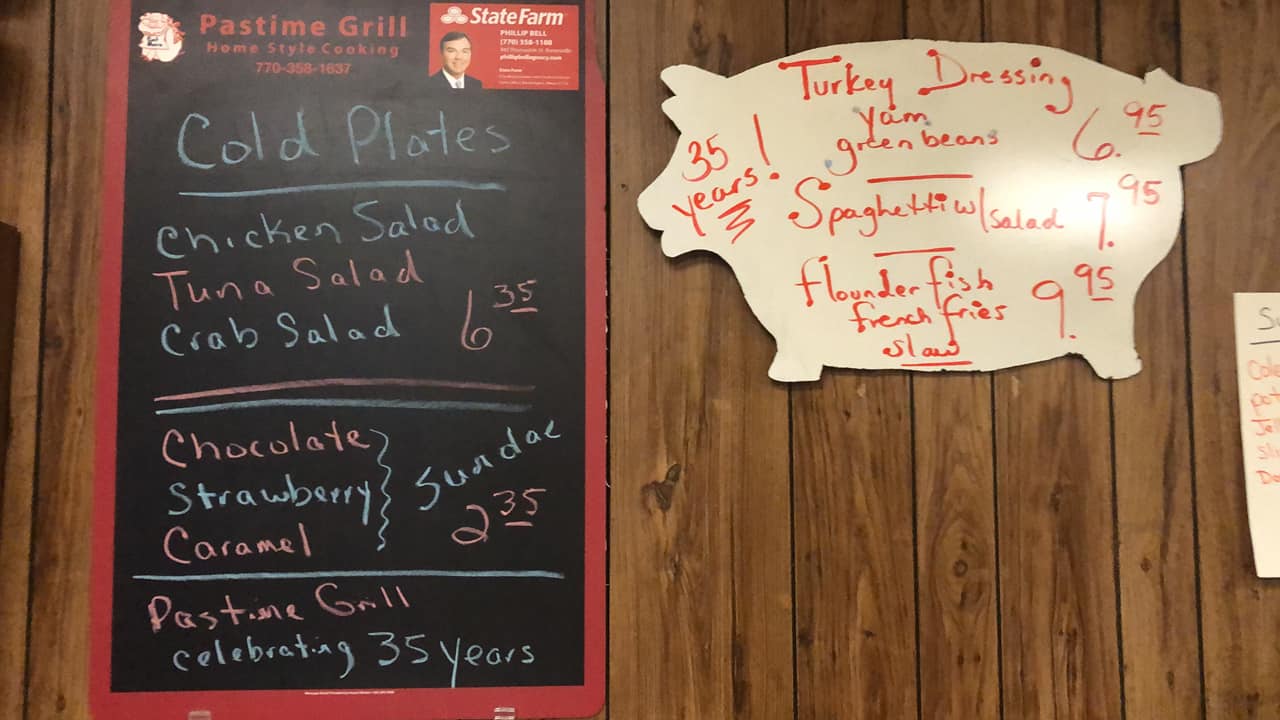 Pastime Grill
Home Style Cooking
770-358-1637
State Farm
PHILLIP BELL
(770) 358-1188
Cold Plates
Chicken Salad
Tuna Salad
Crab Salad
6 35
Chocolate
Strawberry
Caramel
Sundae
2 35
Pastime Grill
celebrating 35 years
35 years!
Turkey Dressing
yam
green beans
6. 95
Spaghetti w/salad 7. 95
flounder fish
french fries
slaw
9. 95